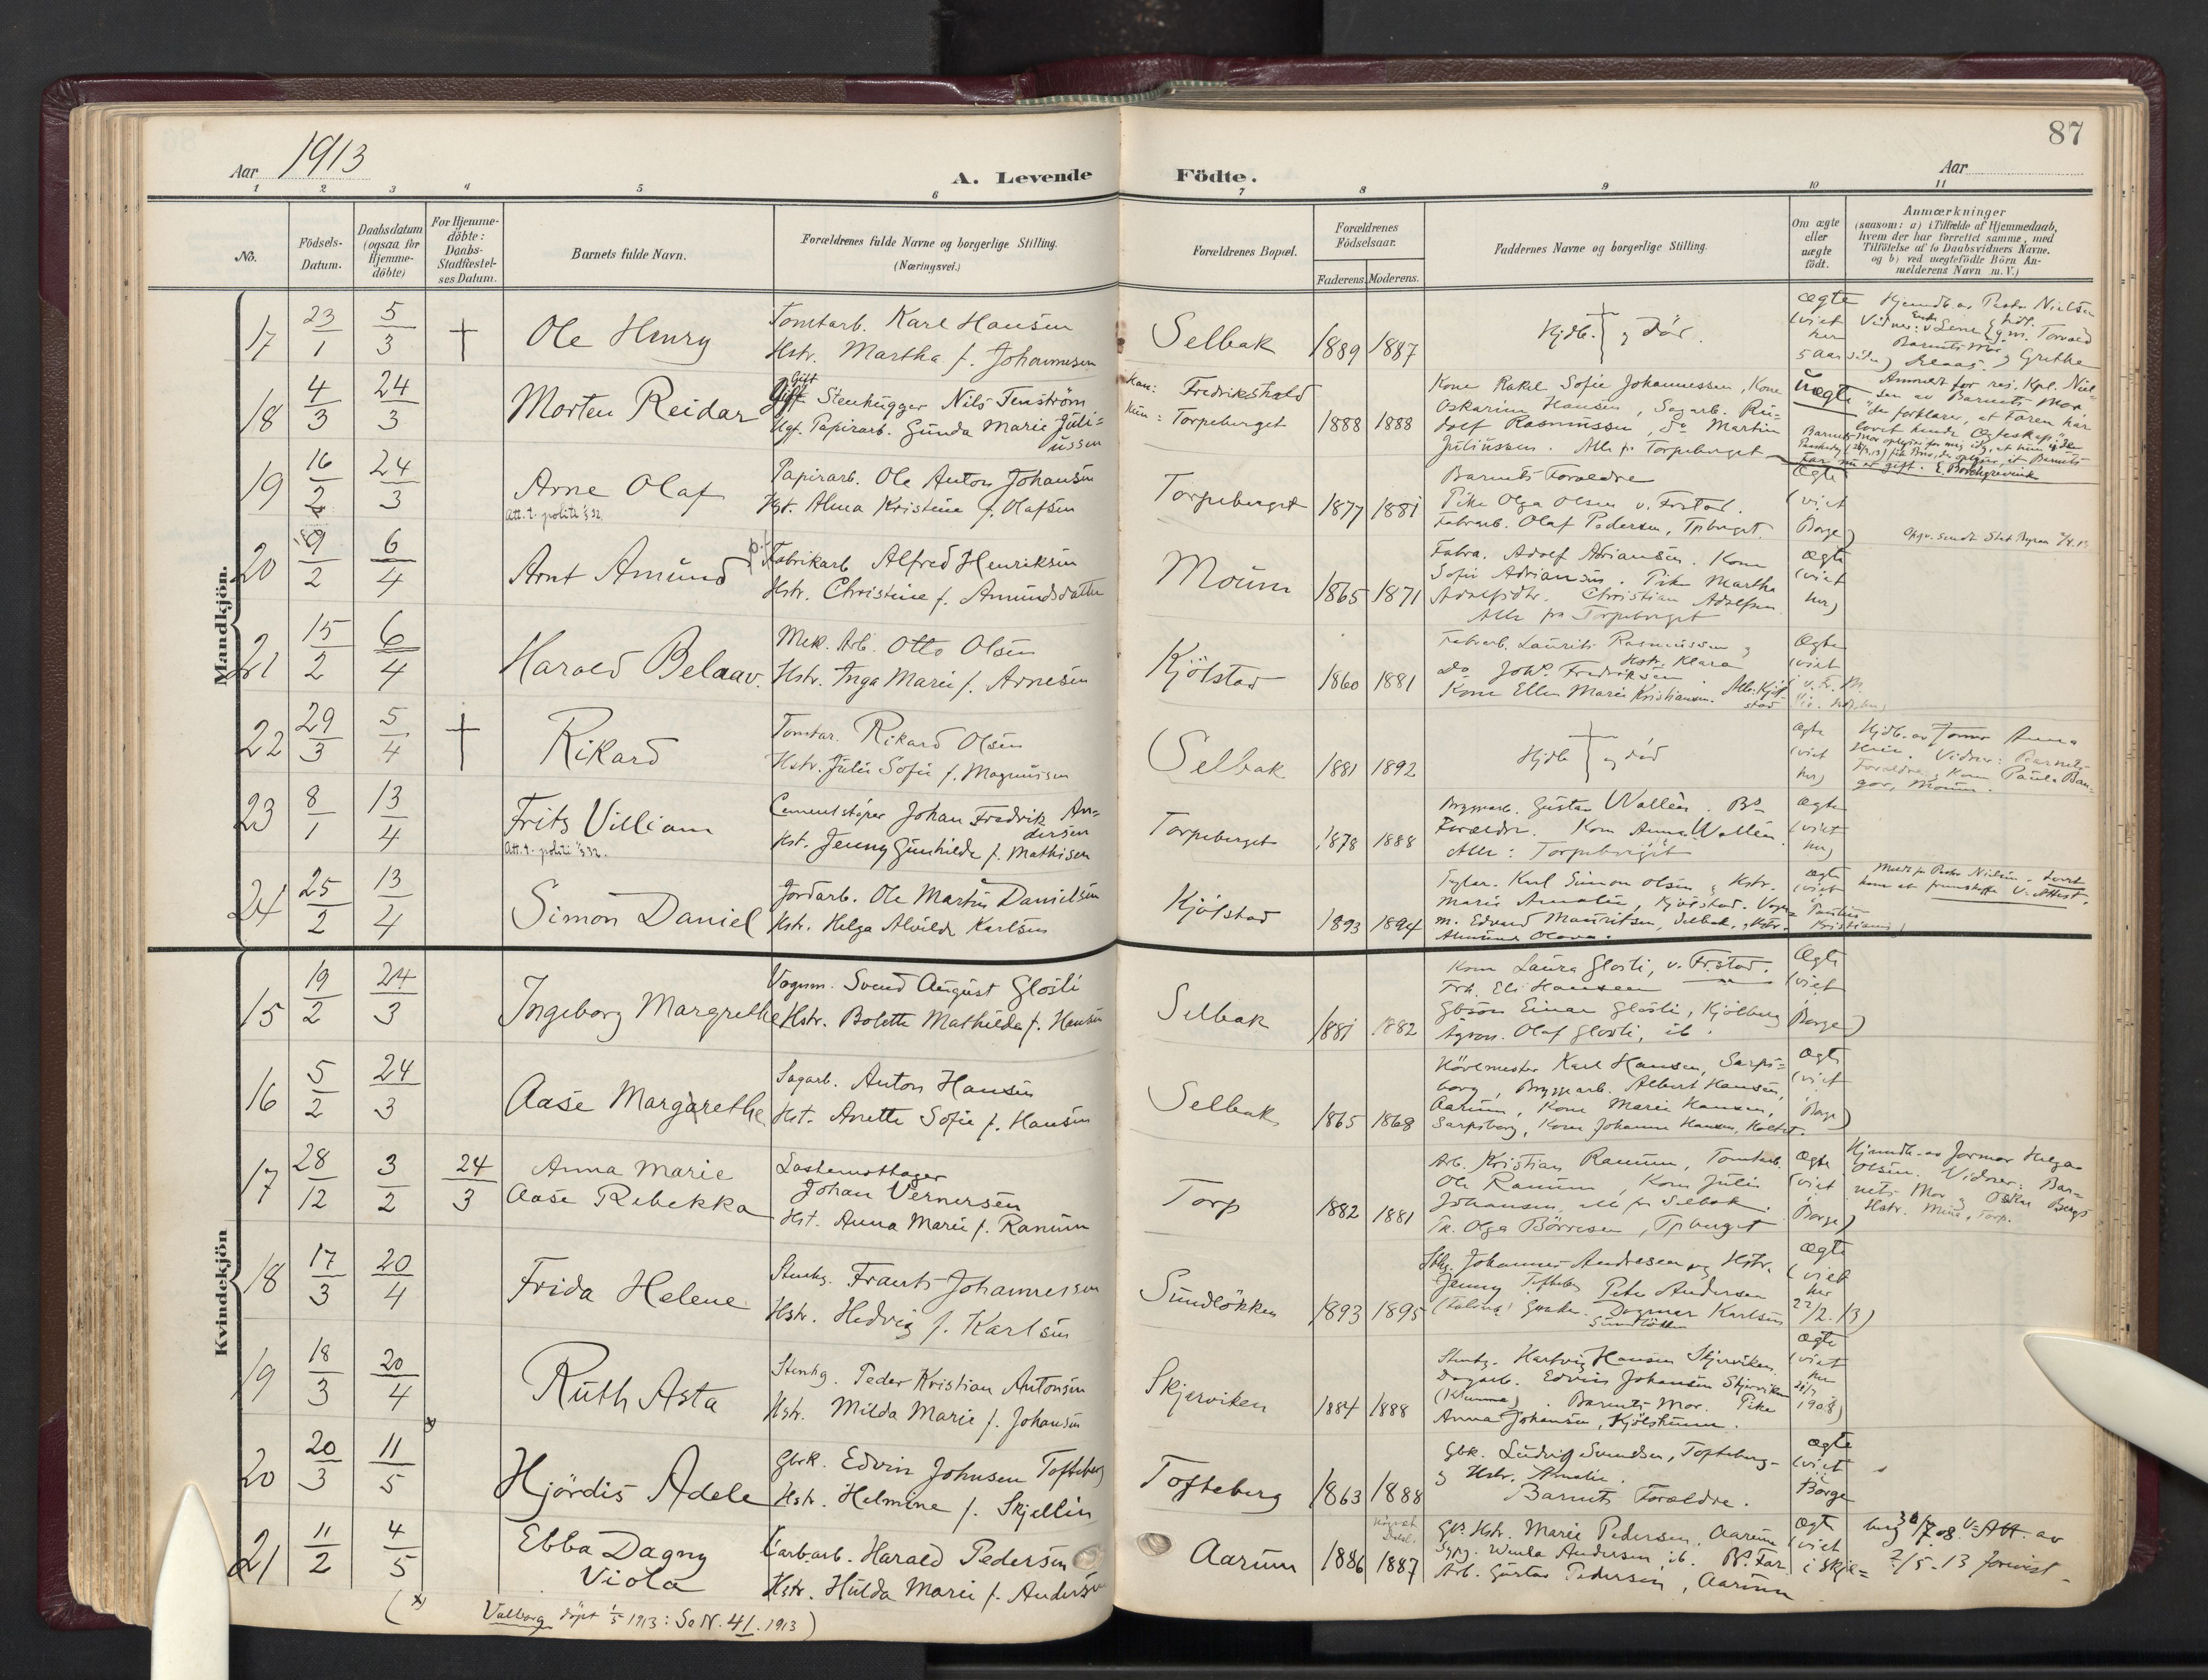 87
Aar 1913
A. Levende Födte.
Aar
1 2 3 4 5 6 7 8 9 10 11
No.
Födsels-Datum.
Daabsdatum (ogsaa for Hjemme-döbte)
For Hjemme-döbte: Daabs-Stadfæstel-ses Datum.
Barnets fulde Navn.
Forældrenes fulde Navne og borgerlige Stilling. (Næringsvei.)
Forældrenes Bopæl.
Forældrenes Födselsaar.
Faderens.
Moderens.
Faddernes Navne og borgerlige Stilling.
Om ægte eller uægte födt.
Anmærkninger
(saasom: a) i Tilfælde af Hjemmedaab, hvem der har forrettet samme, med Tilföielse af to Daabsvidners Navne, og b) ved uægtefödte Börn Anmelderens Navn m. V.)
Mandkjön.
17 23/1 5/3 † Ole Henry
Tomtarb. Karl Hansen
Hstr. Martha f. Johannesen
Selbak 1889 1887
Hjdb. og död.
ægte (viet her 5 aar siden)
18 4/3 24/3 Morten Reidar
Gift Stenhugger Nils Tenström
Ugf. Papirarb. Gunda Marie Juliussen
Han: Fredrikshald
Hun: Torpeberget 1888 1888
Kone Rakel Sofie Johannessen, Kone
Oskarine Hansen, Sagarb. Ru=
dolf Rasmussen, Do Martin
Juliussen. Alle p. Torpeberget
Uægte
Far nu er gift. E. Borchgrevink
19 16/2 24/3 Arne Olaf
Att. t. politi § 32.
Papirarb. Ole Anton Johansen
Hst. Alma Kristine f. Olafsen
Torpeberget 1877 1881
Barnets Forældre
Pike Olga Olsen v. Frstad.
Fabrarb. Olaf Pedersen, Tpberget.
Ægte (viet Borge)
20 9/2 6/4 Arnt Amund
Fabrikarb Alfred Henriksen
Hstr. Christine f. Amundsdatter
Moum 1865 1871
Fabra. Adolf Adriansen. Kone
Sofie Adriansen. Pike Martha
Adolfsdtr. Christian Adolfsen
Alle fra Torpeberget
ægte (viet her)
21 15/2 6/4 Harald Belaav.
Mek. Arb. Otto Olsen
Hstr. Inga Marie f. Arnesen
Kjölstad 1860 1881
Fabrarb. Laurits Rasmussen og
Hstr. Klara
Do Johs. Fredriksen.
Kone Ellen Marie Kristiansen. Alle: Kjölstad
Ægte (viet
22 29/3 5/4 † Rikard
Tomtar. Rikard Olsen
Hstr. Julie Sofie f. Magnusen
Selbak 1881 1892
Hjdb og död
ægte (viet her)
Vidner: Barnets
Forældre, Kone Paula Ban=
gor, Moum.
23 8/1 13/4 Frits Villiam
Att. t. politi § 32.
Cementstöper Johan Fredrik An=
dersen
Hst. Jenny Gunhilde f. Mathisen
Torpeberget 1878 1888
Bryggearb. Gustav Wallén. Bs
Forældre. Kone Anna Wallén.
Alle: Torpeberget
ægte (viet her)
24 25/2 13/4 Simon Daniel
Jordarb. Ole Martin Danielsen
Hstr. Helga Alvilde Karlsen
Kjölstad 1893 1894
Teglar. Karl Simon Olsen og Hstr.
Marie Amalie, Kjölstad. Vogn=
m. Edvard Mauritsen, Selbak, og Hstr.
Amunda Olava.
ægte (viet
Kvindekjön
15 19/2 24/3 Ingeborg Margrethe
Vognm. Svend August Glosli
Hstr. Bolette Mathilde f. Hansen
Selbak 1881 1882
Kone Laura Glosli, v. Fr.stad.
Frk. Eli Hanssen
Gbsön Einar Glosli, Kjölberg
Agron. Olaf Glosli, ib.
Ægte (viet Borge)
16 5/2 24/3 Aase Margarethe
Sagarb. Anton Hansen
Hst. Anette Sofie f. Hansen
Selbak 1865 1868
Hövlmester Karl Hansen, Sarps=
borg, Bryggearb. Albert Hansen,
Aarum, Kone Marie Hansen,
Sarpsborg, Kone Johanne Hansen, Holtet.
Ægte (viet Borge)
17 28/12 3/2 24/3 Anna Marie
Aase Rebekka
Lastemottager
Johan Vernersen
Hst. Anna Marie f. Ranum
Torp 1882 1881
Arb. Kristian Ranum, Tomtarb.
Ole Ranum, Kone Julie
Johansen, alle fra Selbak.
Pk. Olga Börresen, Tpberget
Ægte (viet Borge)
Hjemdb. av Jormor Helga
Olsen. Vidner: Bar=
nets Mor og Oskar Bergs
Hstr. Mina, Torp.
18 17/3 20/4 Frida Helene
Stenhg. Frants Johannessen
Hstr. Hedvig f. Karlsen
Sundlökken 1893 1895
Sthg. Johannes Andresen og Hstr.
Jenny Tofteberg Peter Andersen
Dagmar Karlsen
Sundlökken
ægte (viet her 22/2. 13)
19 18/3 20/4 Ruth Asta
Stenhg. Peder Kristian Antonsen
Hstr. Milda Marie f. Johansen
Skjærviken 1884 1888
Stenhg. Hartvig Hansen Skjærviken
Dagarb. Edvin Johansen Skjærviken
Barnets Mor. Pike
Anna Johansen, Kjölshuun.
ægte (viet her 1908)
20 20/3 11/5 Hjördis Adele
Gbrk. Edvin Johnsen Tofteberg
Hstr. Helmine f. Skjellin
Tofteberg 1863 1888
Gbk. Ludvig Svendsen, Tofteberg
og Hstr. Amalie.
Barnets Forældre.
ægte (viet i Borge
21 11/2 4/5 Ebba Dagny
Viola
Carb.arb. Harald Pedersen
Hstr. Hulda Marie f. Andersen
Aarum 1886 1887
Gbs. Hstr. Marie Pedersen, Aarum
Sypg. Wenla Andersen, ib. Bs. Far
Arb. Gustav Pedersen, Aarum
ægte (viet i Skje=
berg 30/7 08. V-Att. av
2/5-13 forevist
(x) Valborg döpt 1/5 1913: Se N. 41. 1913)